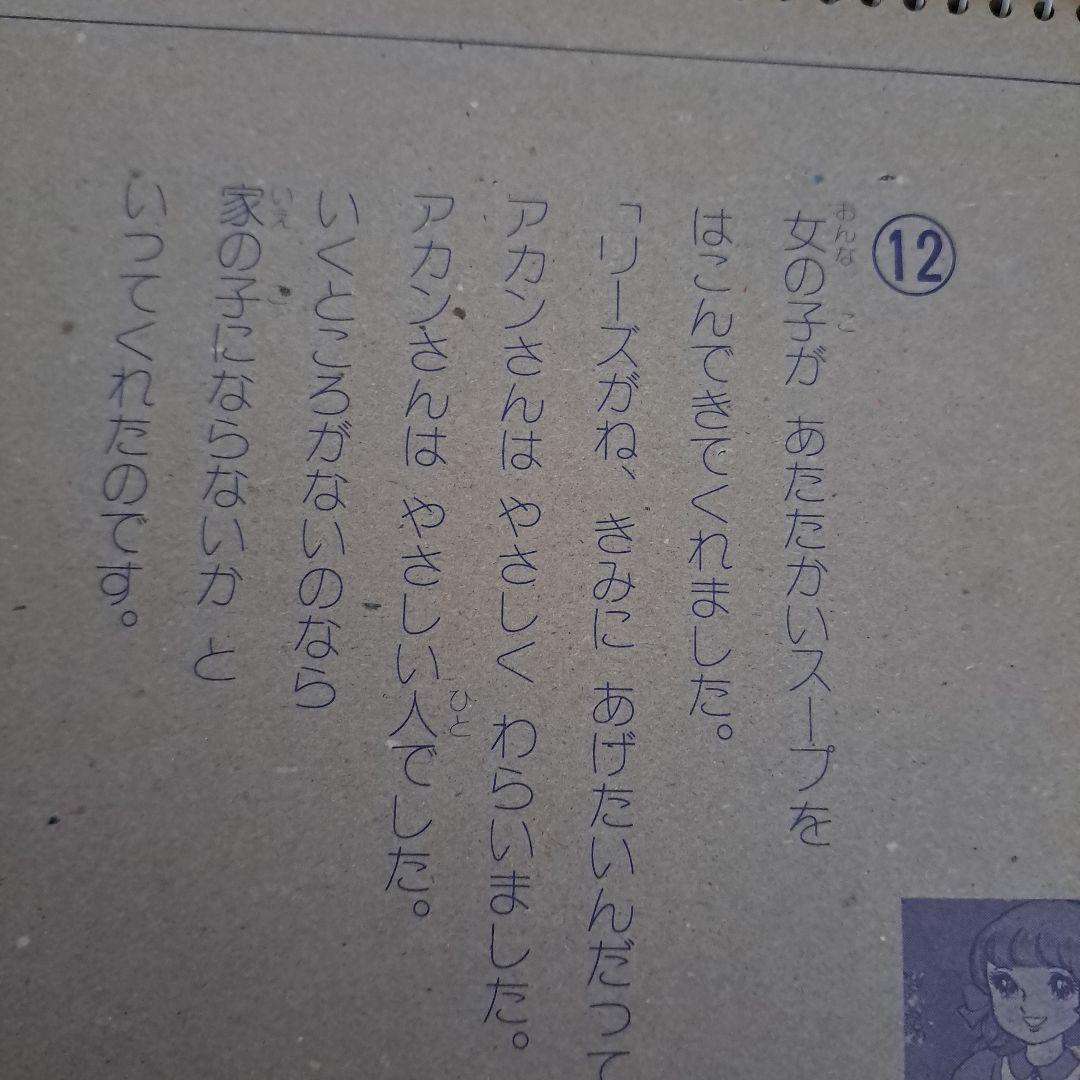 ⑫
女の子が あたたかいスープを
はこんできてくれました。
「リーズがね、きみに あげたいんだって
アカンさんは やさしく わらいました。
アカンさんは やさしい人でした。
いくところがないのなら
家の子にならないか と
いってくれたのです。